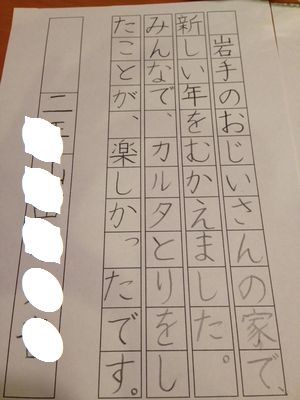 岩手のおじいさんの家で、
新しい年をむかえました。
みんなで、カルタとりをし
たことが、楽しかったです。
二年